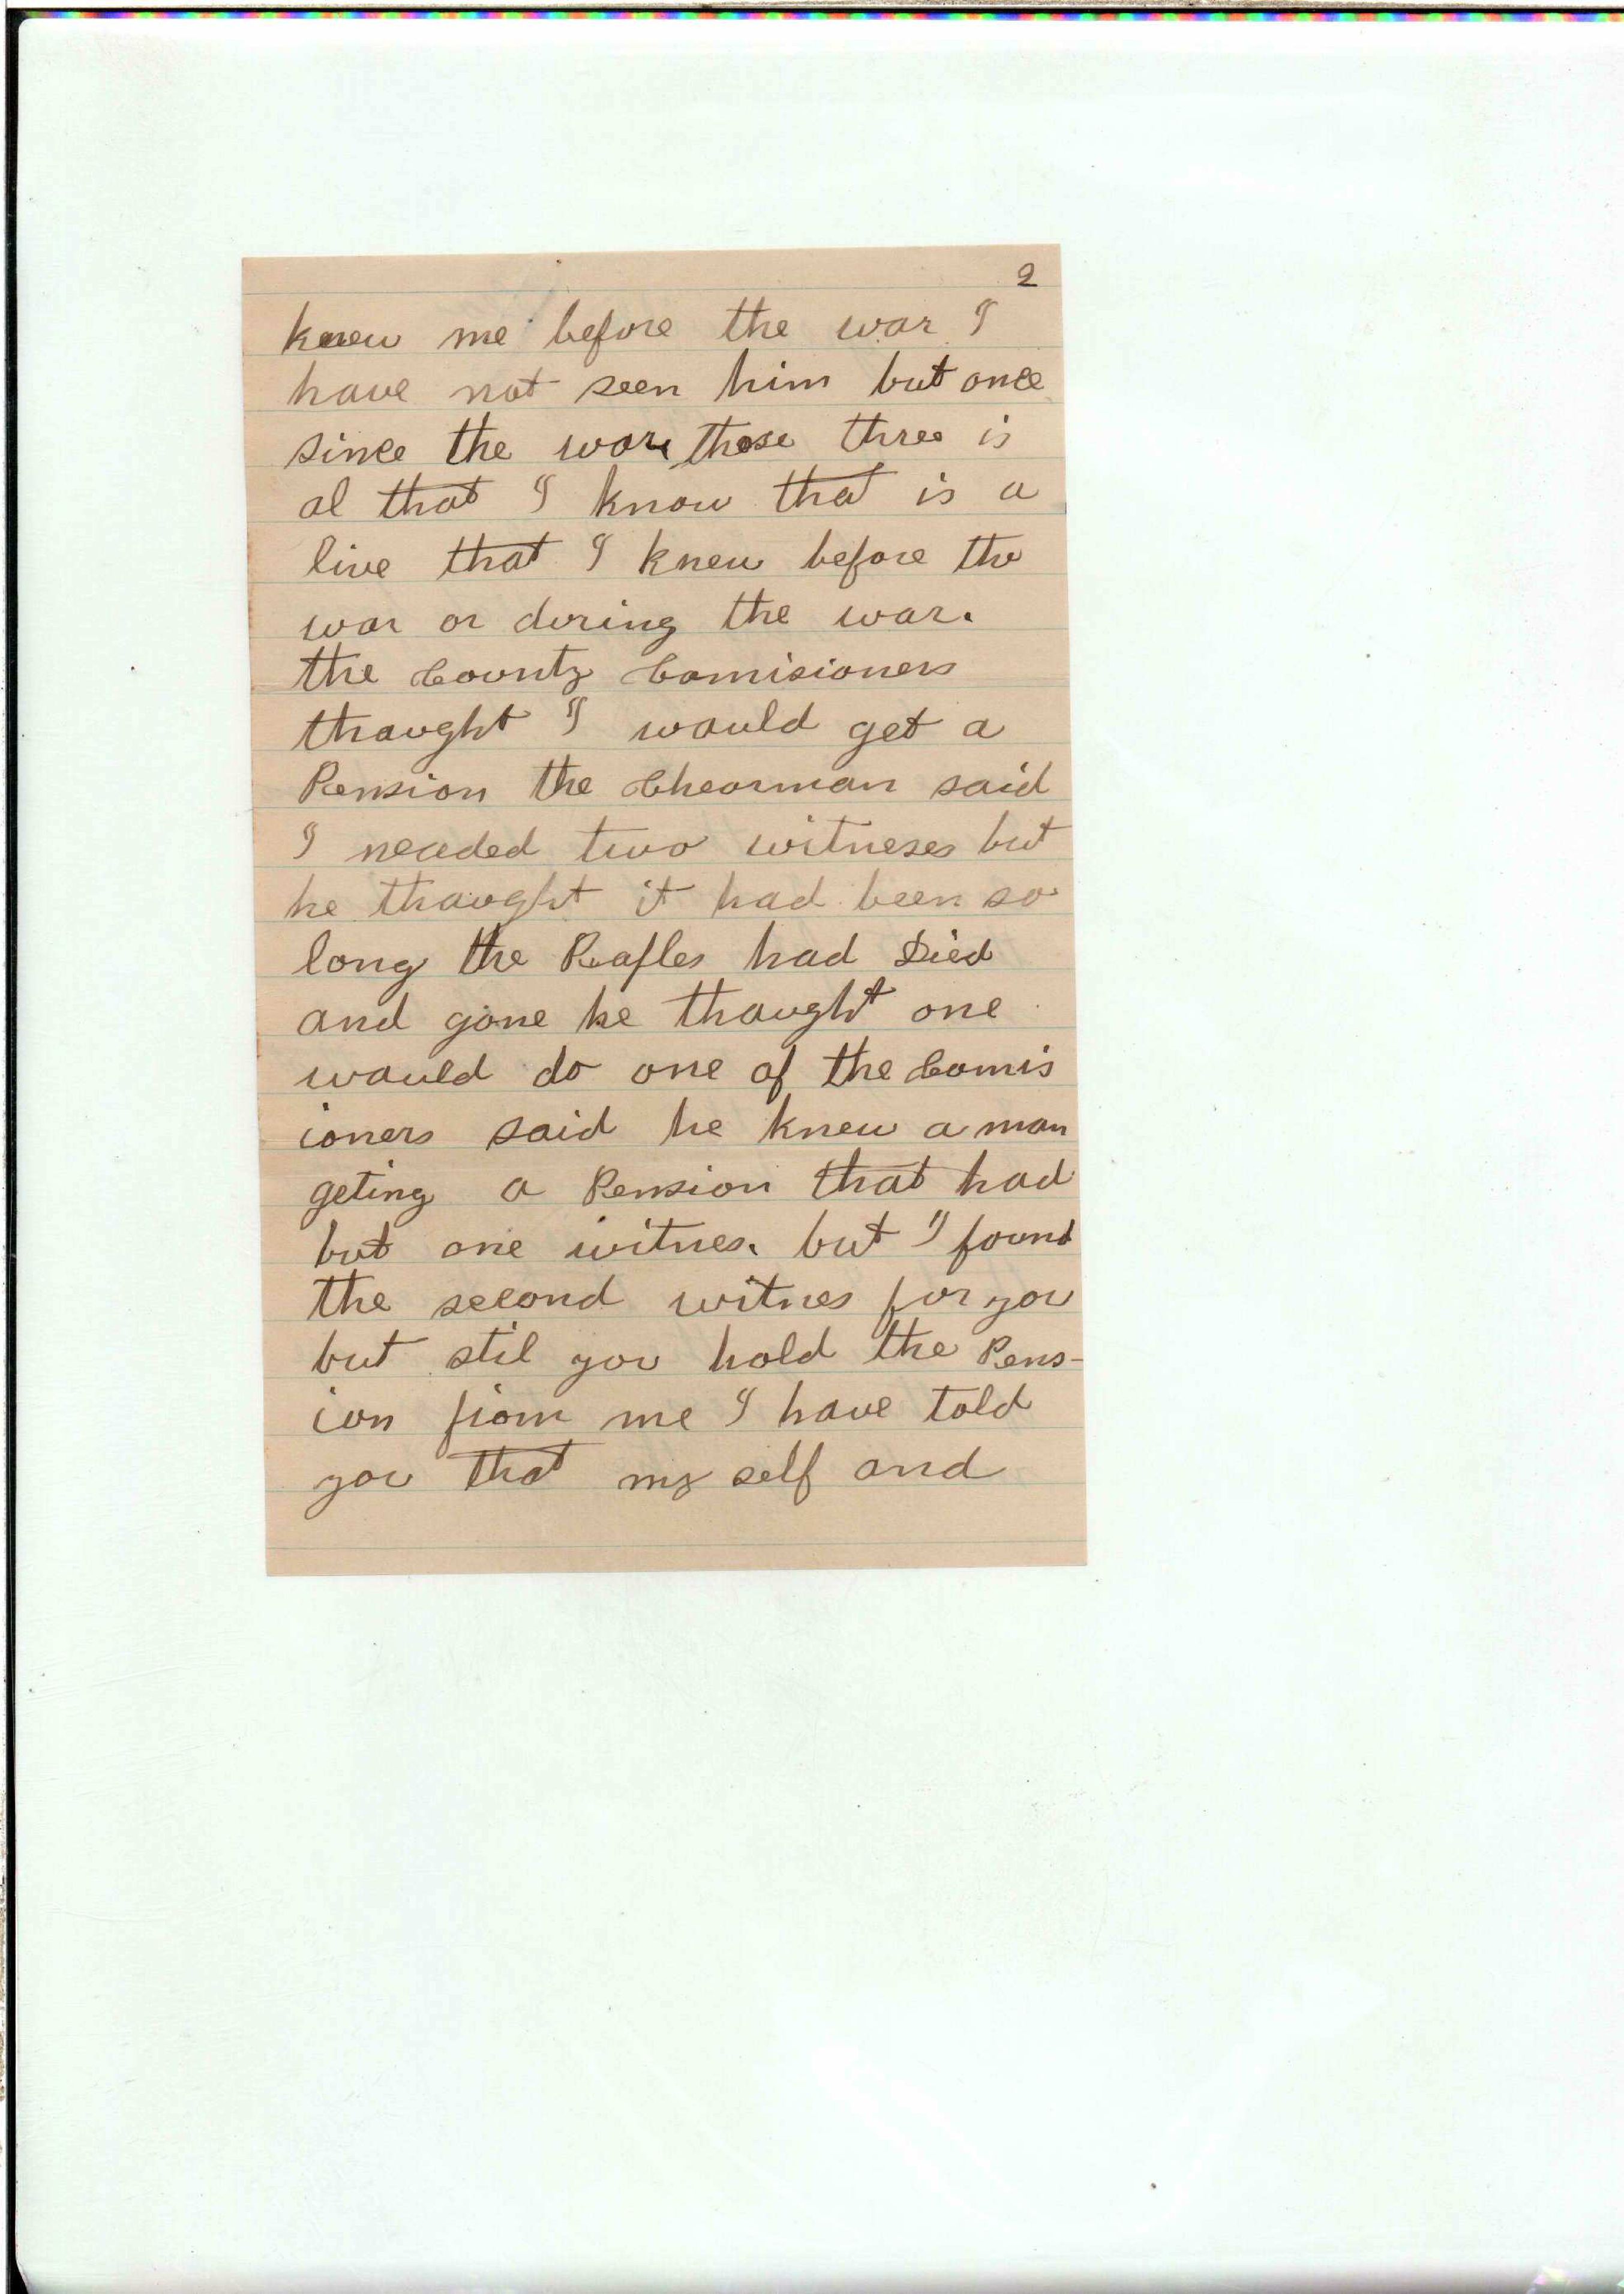 2
knew me before the war I
have not seen him but once
since the war these three is
al that I know that is a
live that I knew before the
war or during the war.
the County Comisioners
thought I would get a
Pension the Chearman said
I neaded two witneses but
he thought it had been so
long the Peaples had Died
and gone he thought one
would do one of the Comis
ioners said he knew a man
geting a Pension that had
but one witnes. but I found
the second witnes for you
but stil you hold the Pens-
ion from me I have told
you that my self and